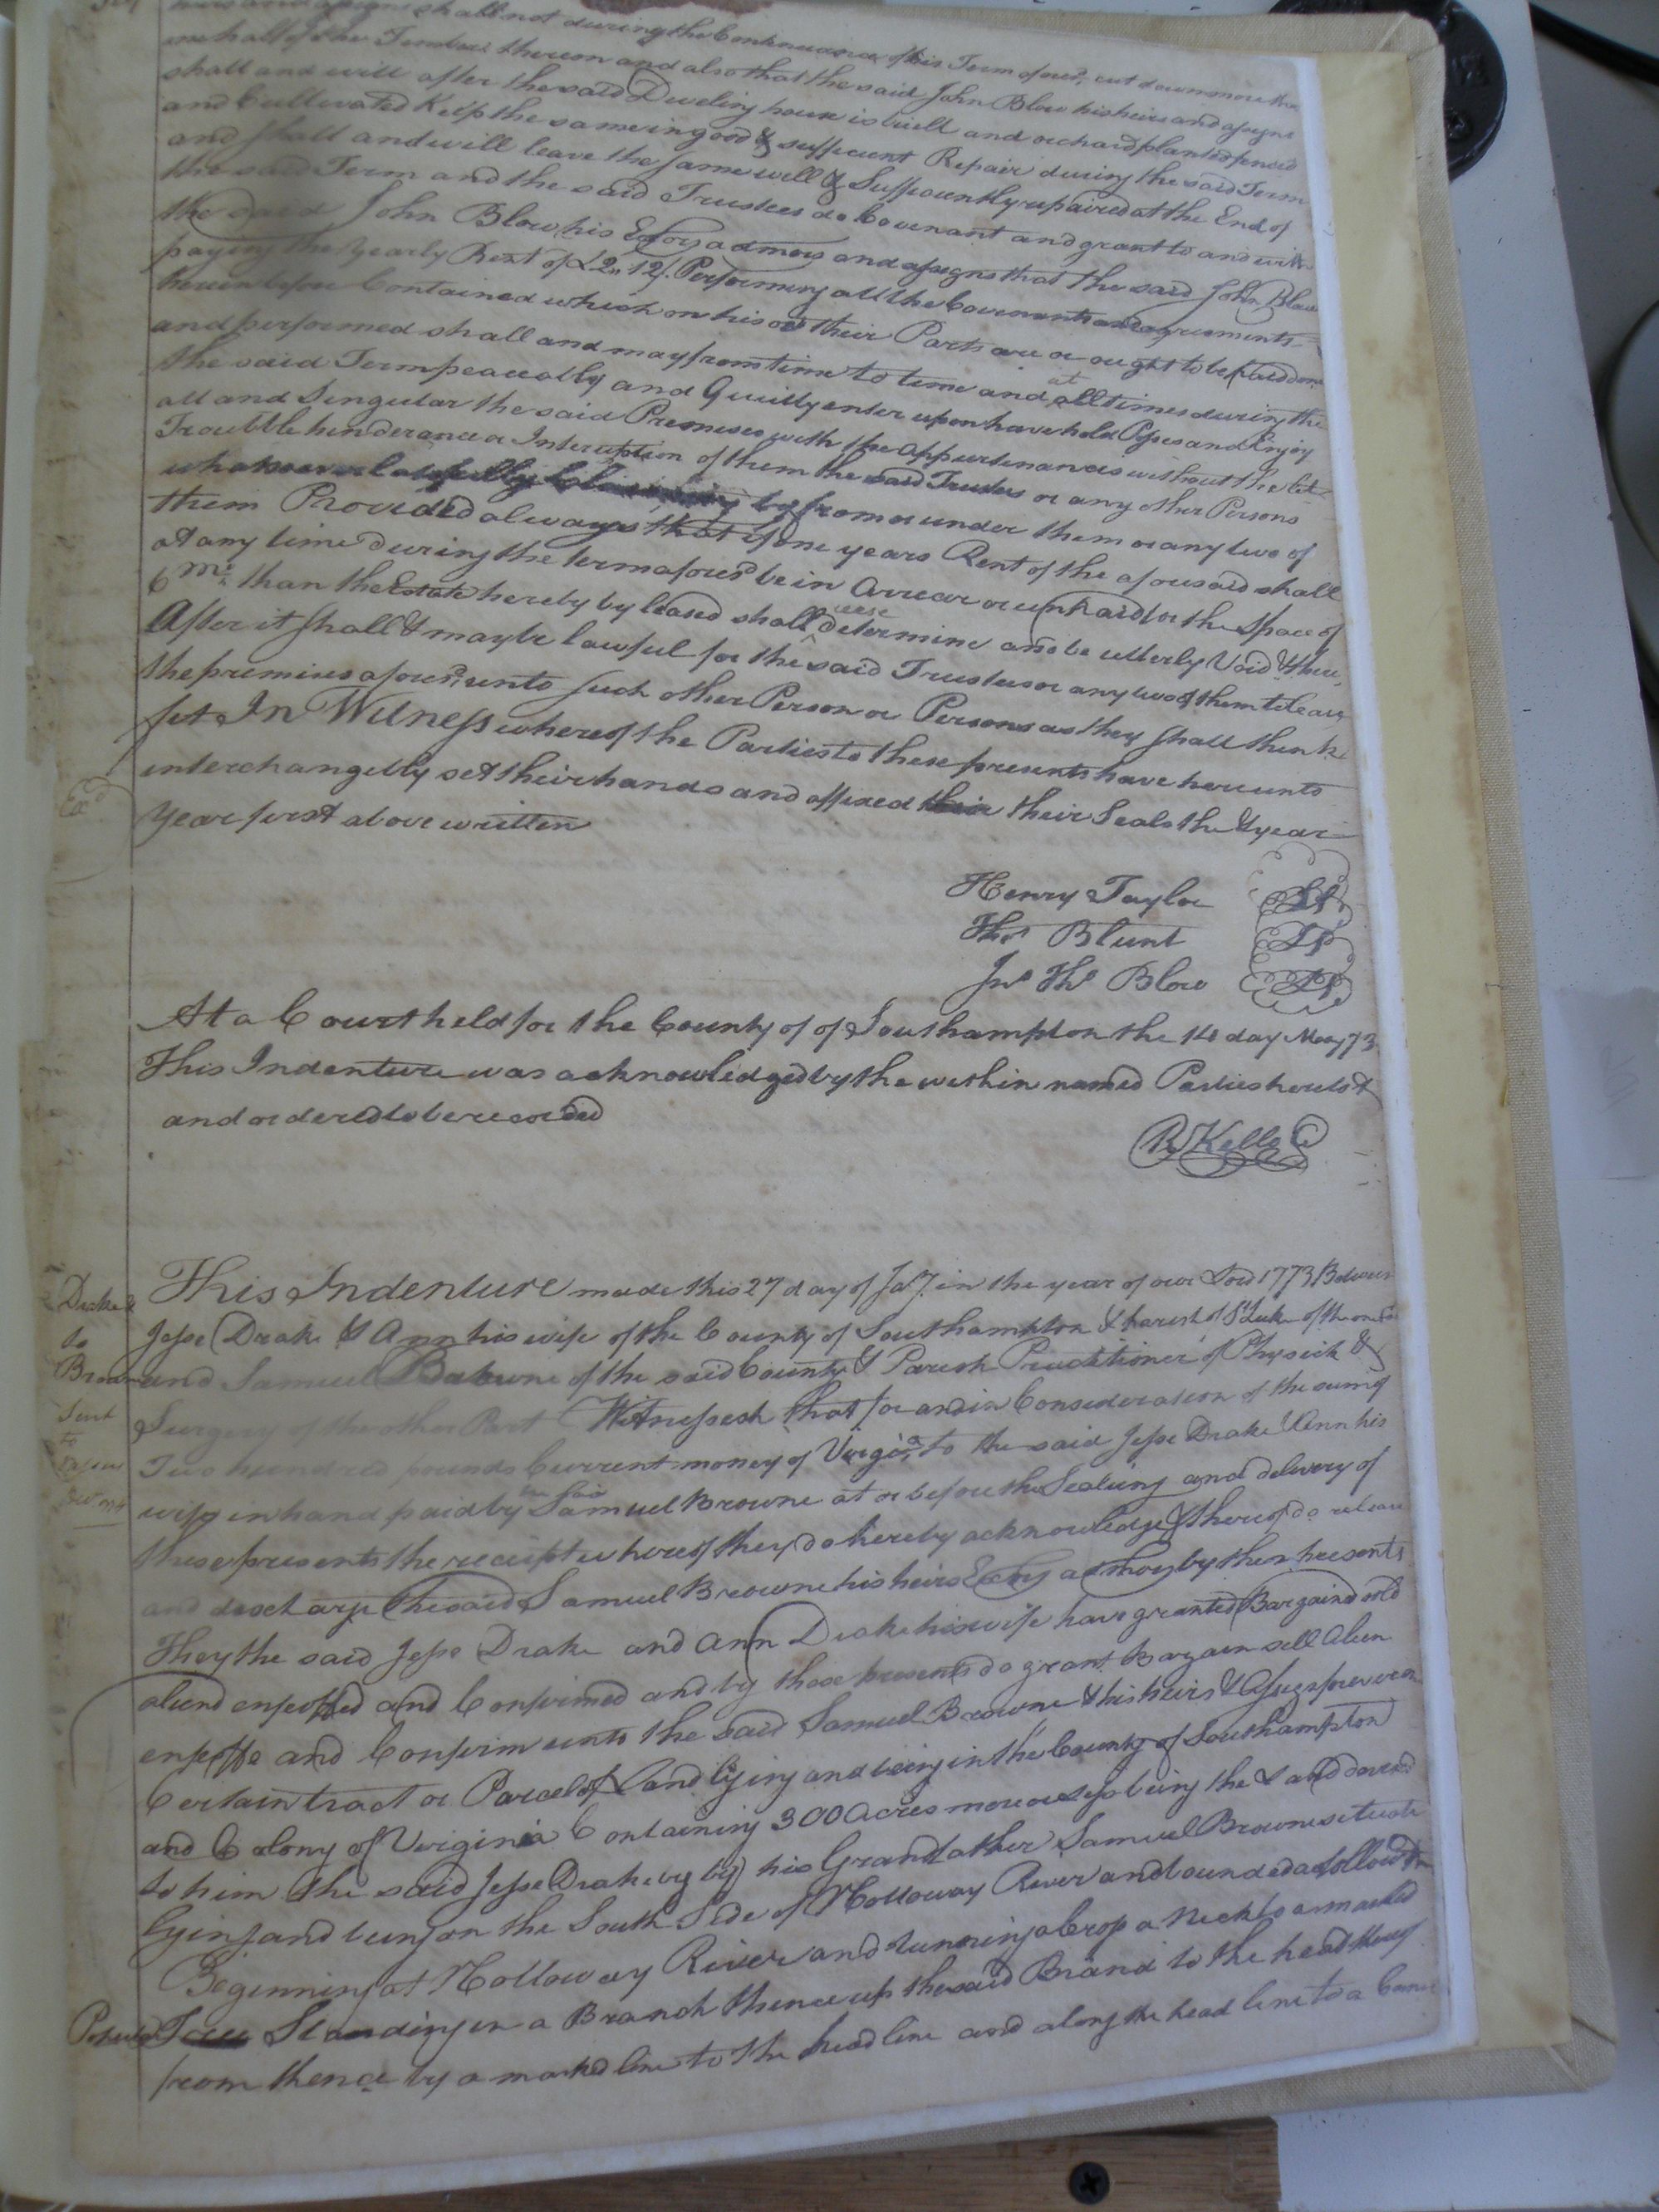 heirs and assigns shall not during the Continuance of this Term afores.d cut down more than
one half of the Timber thereon and also that the said John Blow his heirs and assigns
shall and will after the said Dweling house is built and orchard planted fenced
and Cultivated Keep the same in good & sufficient Repair during the said Term
and shall and will leave the same well & Sufficiently repaired at the End of
the said Term and the said Trustees do Covenant and grant to and with
the said John Blow his Exors admors and assigns that the said John Blow
paying the Yearly Rent of £2,, 12/. Performing all the Covenants and agreements
herein before Contained which on his or their Parts are or ought to be paid done
and performed shall and may from time to time and at all times during the
the said Term peaceably and Quietly enter upon have hold Posses and Enjoy
all and Singular the said Premises with the appurtenances without the let
Troubble hinderance or Interuption of them the said Trustees or any other Persons
whatsoever lawfully by from or under them or any two of
them Provided always that if one years Rent of the aforesaid shall
at any time during the term afores.d be in arrear or unpaid for the Space of
6 m.s than the Estate hereby by leased shall cease determine and be utterly Void & there
After it shall & may be lawful for the said Trustees or any two of them to leave
the premises afores.d unto such other Person or Persons as they shall think
fit In Witness whereof the Parties to these presents have hereunto
interchangebly set their hands and affixed their their Seals the & year
Ex.d
Year first above written
Henry Taylor LS
Tho.s Blunt LS
Jn.o Tho.s Blow LS
At a Court held for the County of of Southampton the 14 day May 73
This Indenture was acknowledged by the within named Parties hereto &
and ordered to be recorded
R Kello C
Drake &
to
Browne
Sent
to
This Indenture made this 27 day of Ja.y in the year of our Lord 1773 Between
Jesse Drake & Ann his wife of the County of Southampton & Parish of S.t Luke of the one Part
and Samuel Browne of the said County & Parish Practitioner of Physick &
Surgery of the other Part Witnesseth that for and in Consideration of the sum of
Two hundred pounds Current money of Virgi.a to the said Jesse Drake & Ann his
wife in hand paid by the said Samuel Browne at or before the Sealing and delivery of
these presents the receipt whereof they do hereby acknowledge & thereof do release
and descharge the said Samuel Browne his heirs Exors admors by these presents
They the said Jesse Drake and Ann Drake his wife have granted Bargaind sold
aliend enfeoffed and Confirmed and by these presents do grant Bargain sell Alien
enfeoffe and Confirm unto the said Samuel Browne & his heirs & Assigs forever one
Certain tract or Parcel of Land lying and being in the County of Southampton
and Colony of Virginia Containing 300 Acres more or less being the Land devised
to him the said Jesse Drake by by his Grandfather Samuel Browne situate
lying and being on the South Side of Notloway River and bounded as followeth
Beginning at Nottoway River and running a Crop a neck to a marked
Tree Standing in a Branch thence up the said Branch to the head thereof
from thence by a marked line to the head line and along the head line to a Corner